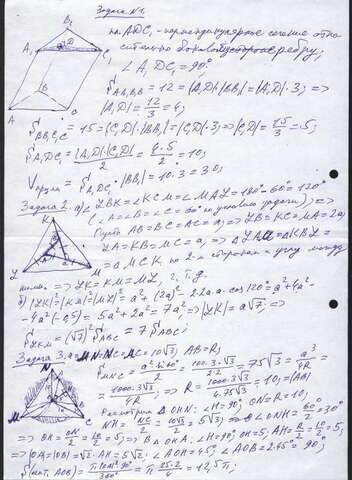 Задача N1.
пл. A₁DC₁ - перпендикулярное сечение отно-
сительно боковой ребру;
∠A₁DC₁ = 90°
S_AA₁B₁B = 12 = |A₁D|·|BB₁| = |A₁D|·3; =>
|A₁D| = 12/3 = 4;
S_BB₁C₁C = 15 = |C₁D|·|BB₁| = |C₁D|·3 => |C₁D| = 15/3 = 5;
S_A₁DC₁ = |A₁D|·|C₁D|/2 = 4·5/2 = 10;
V призм = S_A₁DC₁·|BB₁| = 10·3 = 30;
Задача 2. а) ∠LBK = ∠KCM = ∠MAL = 180°-60° = 120°
(∠A=∠B=∠C=60° по условию задачи) =>
Пусть AB=BC=AC=a; => LB=KC=MA=2a;
LA=KB=MC=a; => ΔLAM = ΔKBL =
= ΔMCK по 2-м сторонам и углу между
ними => LK=KM=ML, ч.т.д.
б) |LK|² = |KM|² = |ML|² = a²+(2a)²-2·2a·a·cos120° = a²+4a²-
-4a²(-0,5) = 5a²+2a² = 7a² => |LK| = a√7; =>
S_LKM = (√7)² S_ABC = 7 S_ABC;
Задача 3. MN=NC=MC=10√3; AB=R;
S_MNC = a²·sin60°/2 = 100·3·√3/2·2 = 75√3 = a³/4R =
= 1000·3√3/4R; => R = 1000·3√3/4·75√3 = 10; =|AB|
Рассмотрим ΔOHN: ∠H=90°; ON=R=10;
NH = NC/2 = 10√3/2 = 5√3; => ∠ONH = 60°/2 = 30°
=> OH = ON/2 = 10/2 = 5; => В ΔOHA: ∠H=90°; OH=5; AH = R/2 = 10/2 = 5;
=> |OA|=|OB|=√2·AH=5√2; ∠AOH=45°; ∠AOB=2·45°=90°;
= π·25·2/4 = 12,5π;